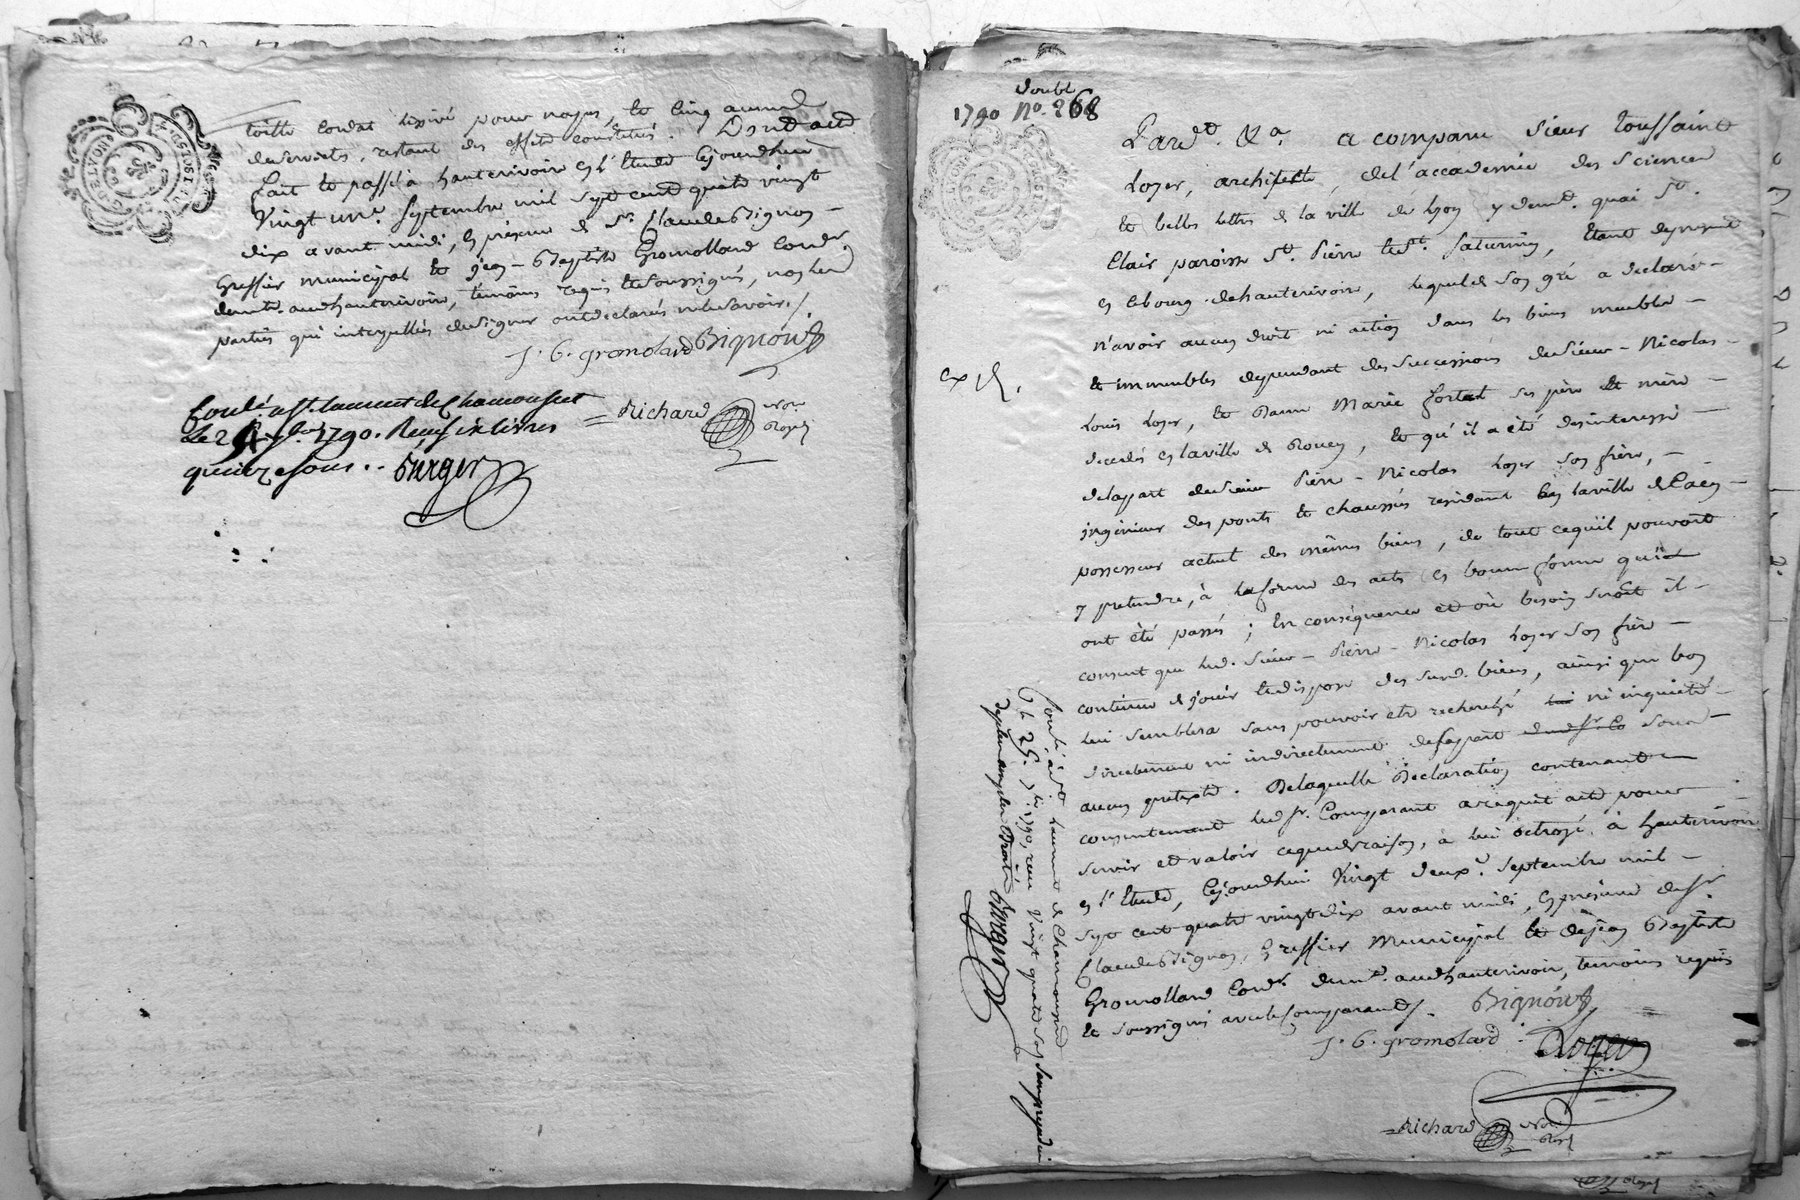 toille lessivé pour napes, et cinq
de serviete, restant des effets constitués. Dont acte
fait et passé à hauterivoire en l'Etude cejourdhuy
Vingt un.e Septembre mil sept cent quatre vingt
dix avant midi, en présence de Sr. Claude Bignon -
Greffier municipal et jean-Baptiste Gromollard Cordr.
demt. audhauterivoire, témoins requis et soussignés, non les
parties qui interpellées de signer ont déclarés ne le savoir./
J. B. gromolard Bignon
= Richard Nore. Royal
Conlé à St. Laurent de Chamousset
Le 25 7bre 1790. Reçu six livres
quinze sous .. Burger
double
1790 no. 268
Pardt. &a. a comparu sieur Toussaint
Loyer, architecte, de l'accademie des Sciences
et belles lettres de la ville de Lyon y demt. quai St.
Clair paroisse St. Pierre et St. Saturnin, Etant de présent
en cebourg dehauterivoire, lequel de son gré a declaré -
n'avoir aucun droit ni action dans les biens meubles -
et immeubles dependant des successions de Sieur - Nicolas -
Louis Loyer, et Dame Marie fortet ses père et mère -
exp.
decedés en laville de Rouen, et qu'il a été desinteressé -
delapart de Sieur Pierre - Nicolas Loyer son frère, -
ingénieur des ponts et chaussées residant en laville de Caën -
possesseur actuel des mêmes biens, de tout cequ'il pouvoit
y pretendre, à laforme des actes en bonne forme qui en
ont été passés ; En conséquence et où besoin seroit il -
consent que led. Sieur - Pierre - Nicolas Loyer son frère -
continue de jouir et dispose des susd. biens, ainsi que bon
lui semblera sans pouvoir etre recherché ni inquiété -
directement ni indirectement delapart sous -
aucun pretexte. Delaquelle Declaration contenant -
consentement led. sr. Comparant a requis acte pour
servir et valoir ceque de raison, à lui octroyé, à hauterivoire
en l'Etude, Cejourdhui Vingt deux.e Septembre mil -
sept cent quatre vingt dix avant midi, en présence de Sr.
Claude Bignon, Greffier Municipal et de jean Baptiste
Gromollard Cordr. demt. aud.hauterivoire, temoins requis
et soussignés avec le Comparant./.
Bignon
J. B. gromolard
Loyer
= Richard Nore. Royal
Conlé à St. Laurent de Chamousset
le 25. 7bre. 1790, reçu Vingt quatre Sols
Burger